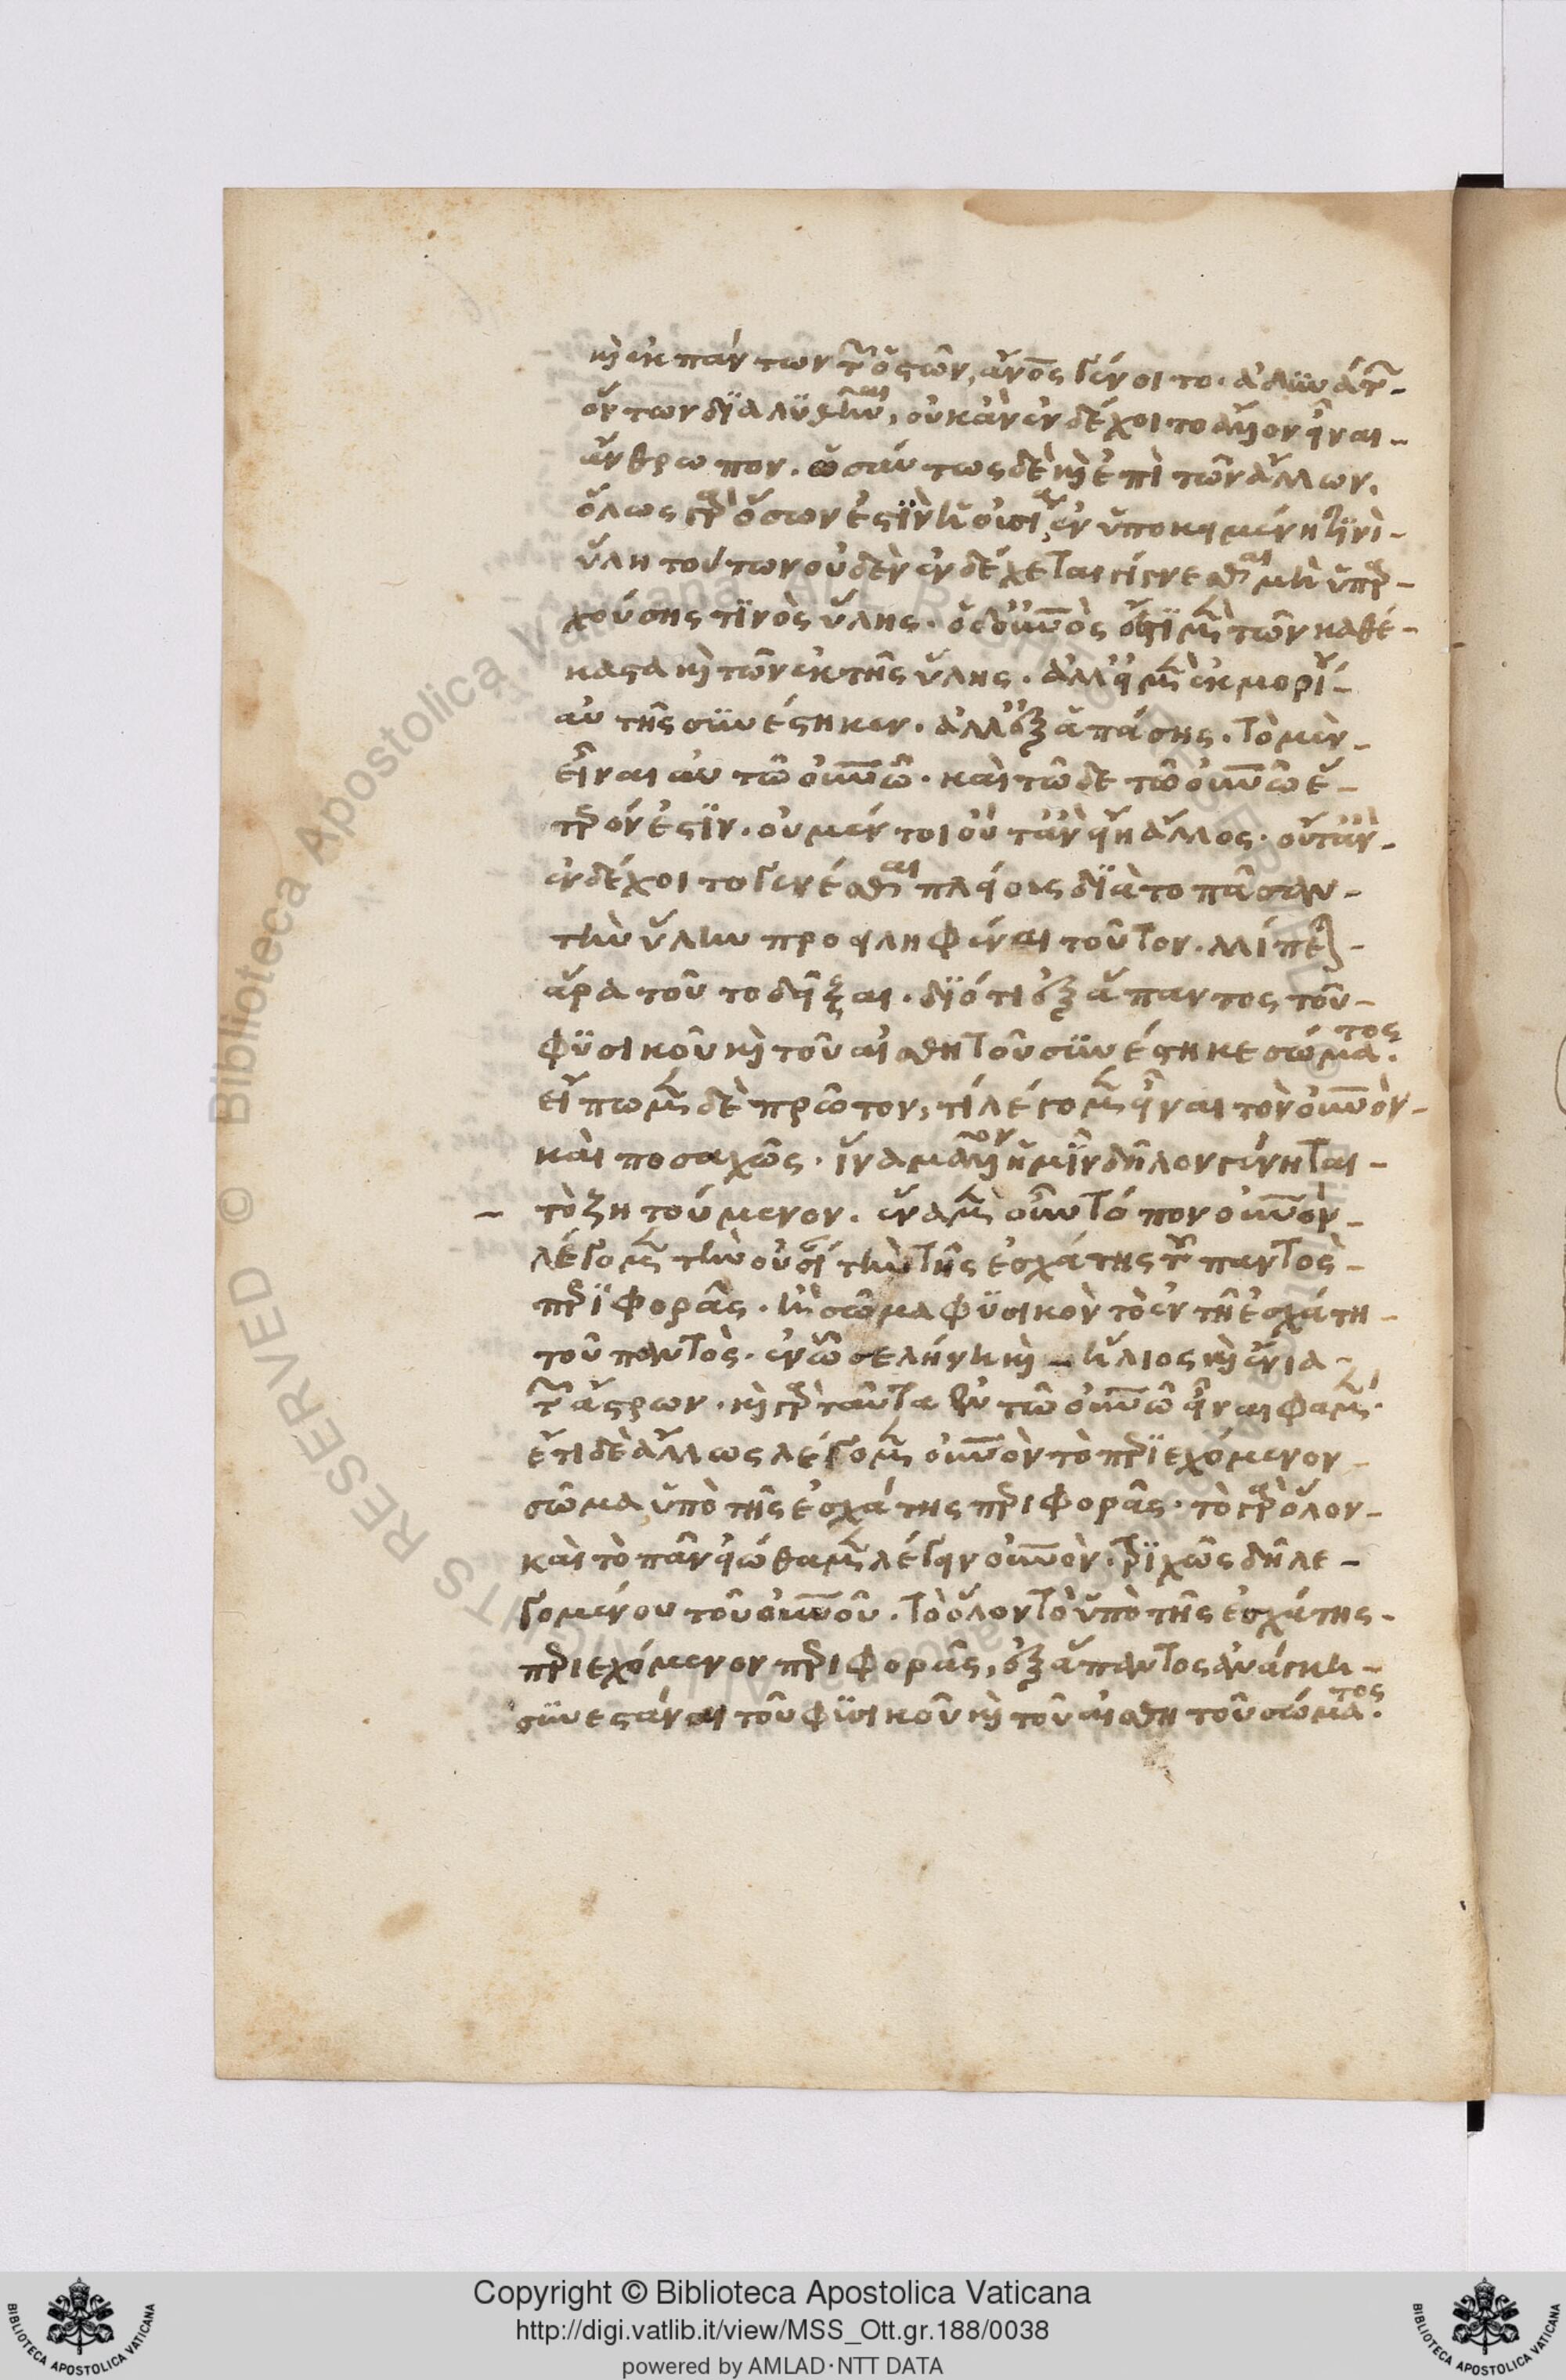 κὶ ἐκ πάντων τῶν ὀστῶν, ἄνος γένοιτο. ἀδυνάτων
ὄντων διαλυθῆναι, οὐκ ἂν ἐνδέχοιτο ἄλλον εἶναι
ἄνθρωπον. ὡσαύτως δὲ κὶ ἐπὶ τῶν ἄλλων.
ὅλως γὰρ ὅσων ἐστὶν ἡ οὐσία ἐν ὑποκειμένη τινὶ
ὕλη τούτων οὐδὲν ἐνδέχεται γίγνεσθαι μὴ ὑπαρ
χούσης τινὸς ὕλης. ὁ δ' οὐνος ἔστι μὲν τῶν καθέ
καστα κὶ τῶν ἐκ τῆς ὕλης. ἀλλ' εἰ μὴ ἐκ μορίου
αὐτῆς συνέστηκεν. ἀλλ' ἐξ ἁπάσης. τὸ μὲν
εἶναι αὐτῶ οὐνῶ. καὶ τῶδε τῶ οὐνῶ ἕ
τερόν ἐστιν. οὐ μέντοι οὔτ' ἂν εἴη ἄλλος. οὔτ' ἂν
ἐνδέχοιτο γενέσθαι πλείους διὰ τὸ πᾶσαν
τὴν ὕλην προειληφέναι τοῦτον. λείπεται
ἄρα τοῦτο δεῖξαι. διότι ἐξ ἅπαντος τοῦ
φυσικοῦ κὶ τοῦ αἰσθητοῦ συνέστηκε σώματος.
εἴπωμεν δὲ πρῶτον, τί λέγομεν εἶναι τὸν οὐνὸν
καὶ ποσαχῶς. ἵνα μᾶλλον ἡμῖν δῆλον γένηται
τὸ ζητούμενον. ἕνα μὲν οὖν τόπον οὐνὸν
λέγομεν τὴν οὐσίαν τὴν τῆς ἐσχάτης τοῦ παντὸς
περιφορᾶς. ἢ σῶμα φυσικὸν τὸ ἐν τῆ ἐσχάτη
τοῦ παντὸς. ἐν ῶ σελήνη κὶ ἥλιος κὶ ἔνια
τῶν ἄστρων. κὶ γὰρ ταῦτα ἐν τῶ οὐνῶ εἶναι φαμέν.
ἔτι δὲ ἄλλως λέγομεν οὐνὸν τὸ περιεχόμενον
σῶμα ὑπὸ τῆς ἐσχάτης περιφορᾶς. τὸ γὰρ ὅλον
καὶ τὸ πᾶν εἰώθαμεν λέγειν οὐνόν. τριχῶς δὴ λε
γομένου τοῦ οὐνοῦ. τὸ ὅλον τὸ ὑπὸ τῆς ἐσχάτης
περιεχόμενον περιφορᾶς, ἐξ ἅπαντος ἀνάγκη
συνεστάναι τοῦ φυσικοῦ κὶ τοῦ αἰσθητοῦ σώματος.
Copyright © Biblioteca Apostolica Vaticana
http://digi.vatlib.it/view/MSS_Ott.gr.188/0038
powered by AMLAD·NTT DATA